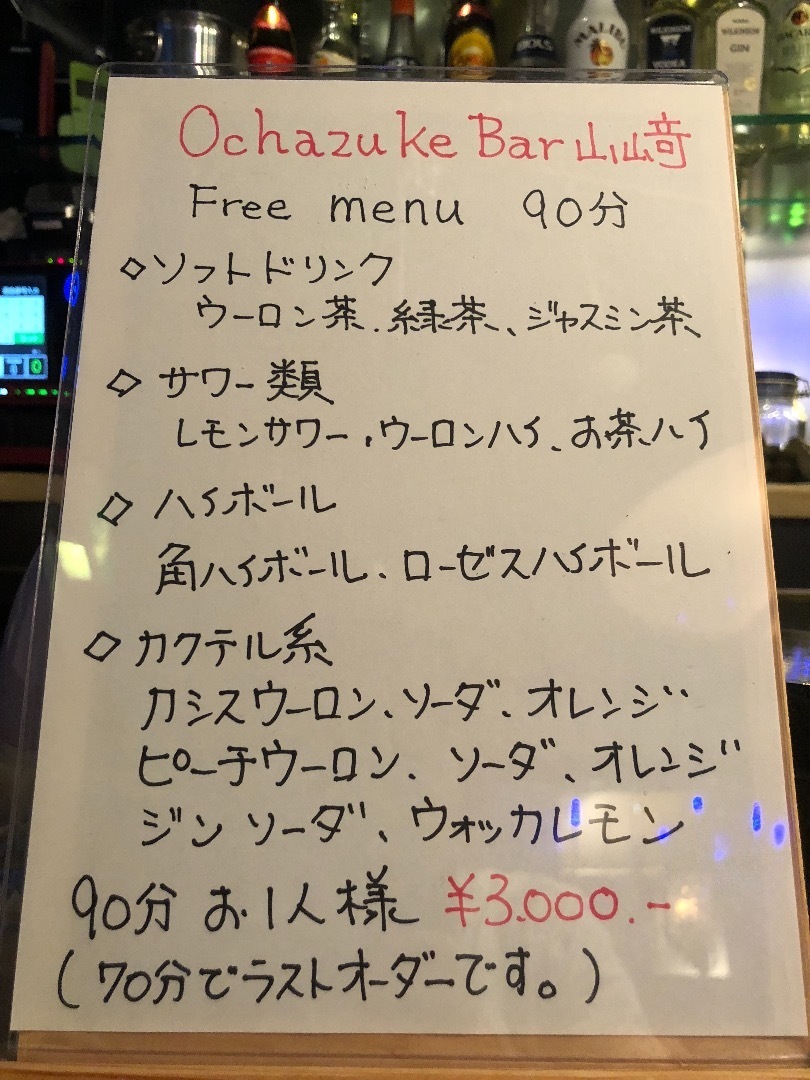 MALIBU
VODKA
WILKINSON
GIN
Ochazuke Bar 山崎
Free menu 90分
◇ソフトドリンク
ウーロン茶、緑茶、ジャスミン茶
◇サワー類
レモンサワー、ウーロンハイ、お茶ハイ
◇ハイボール
角ハイボール、ローゼスハイボール
◇カクテル系
カシスウーロン、ソーダ、オレンジ
ピーチウーロン、ソーダ、オレンジ
ジンソーダ、ウォッカレモン
90分 お1人様 ¥3.000.-
(70分でラストオーダーです。)